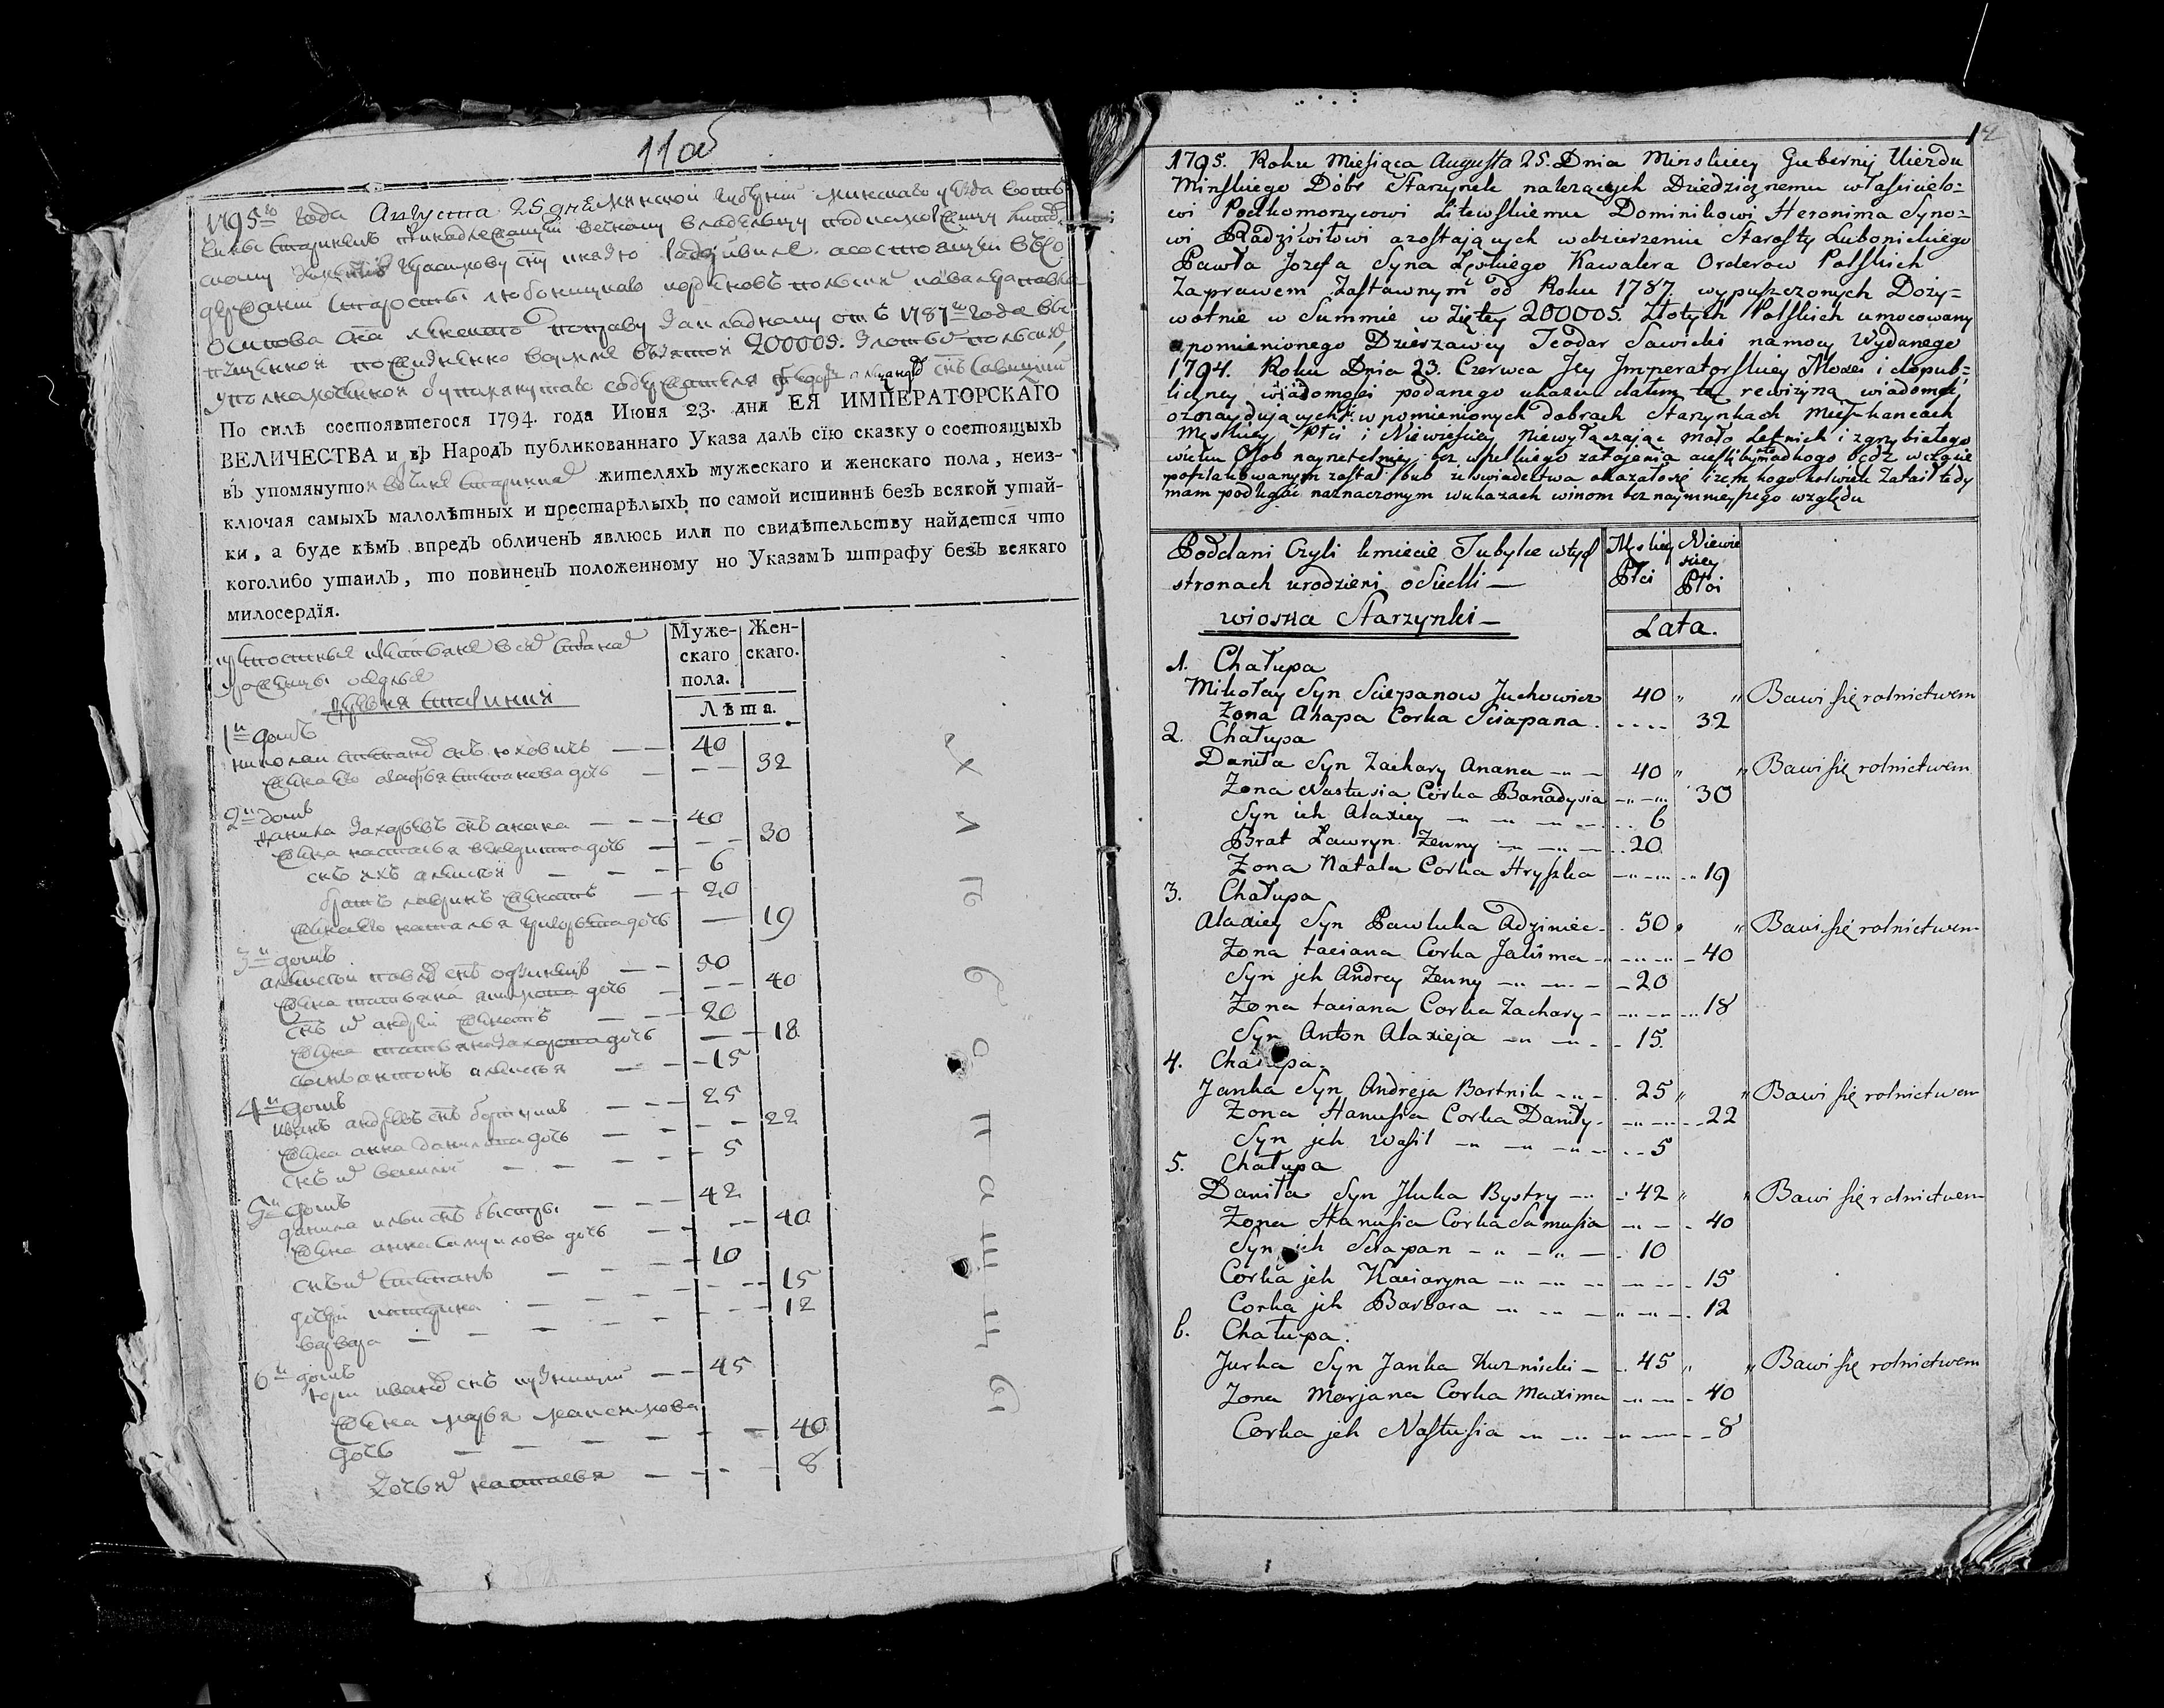 11 об
1795го года Августа 25 дня Минской губернии Минскаго уезда
Старинкъ принадлежащей вечному владельцу
сыну князю Радзивиле а состоящей въ
держании Старосты Любоницкаго орденовъ польскихъ кавалера Павла
Осипова сна по праву закладному отъ 1787го года
пожизненно въ сумме взятой 200005. злотыхъ польскихъ
уполномоченной упомянутаго содержателя снъ Савицкий
По силѣ состоявшегося 1794. года Июня 23. дня ЕЯ ИМПЕРАТОРСКАГО
ВЕЛИЧЕСТВА и въ Народъ публикованнаго Указа далъ сїю сказку о состоящыхъ
въ упомянутой вотчине Старинке жителяхъ мужескаго и женскаго пола, неиз-
ключая самыхъ малолѣтныхъ и престарѣлыхъ по самой истиннѣ безъ всякой утай-
ки, а буде кѣмъ впредъ обличенъ явлюсь или по свидѣтельству найдется что
коголибо утаилъ, то повиненъ положенному по Указамъ штрафу безъ всякаго
милосердїя.
Муже-
скаго
пола.
Жен-
скаго.
Лѣта.
деревня Старинки
1й домъ
николай степановъ снъ юховичъ 40
жена его агафья степанова дочь 32
2й домъ
данила захарьевъ снъ анана 40
жена настасья венедикта дочь 30
снъ ихъ алексей 6
братъ лавринъ женатъ 20
жена его наталья григорьева дочь 19
3й домъ
алексей павловъ снъ одзинецъ 50
жена татьяна дочь 40
снъ их андрей женатъ 20
жена татьяна захарова дочь 18
сынъ антонъ алексея 15
4й домъ
иванъ андреевъ снъ бортникъ 25
жена анна данилова дочь 22
снъ их василий 5
5й домъ
данила ильи снъ быстры 42
жена анна самуилова дочь 40
снъ их степанъ 10
дочери катерина 15
варвара 12
6й домъ
юри ивановъ снъ кузницкий 45
жена марья максимова
дочь 40
дочь их настасья 8
Х л ѣ б о п а ш ц ы
12
1795. Roku Miesiąca Augusta 25. Dnia Minskiey Gubernij Uiezdu
Minskiego Dobr Starzynek należących Dziedzicznemu właścicielo=
wi Podkomorzycowi Litewskiemu Dominikowi Heronima Syno=
wi Radziwiłowi azostających wdzierzeniu Starosty Lubonickiego
Pawła Jozefa Syna Kawalera Orderow Polskich
Zaprawem Zastawnym od Roku 1787. wypuszczonych Doży=
wotnie w Summie wziętey 200005. Złotych Polskich umocowany
wpomienionego Dzierzawcy Teodor Sawicki namocy Wydanego
1794. Roku Dnia 23. Czerwca Jey Jmperatorskiey Mości i dopub=
liczney wiadomości podanego ukazu dałem tę rewizyną wiadomość
oznayduiących się wpomienionych dobrach Starynkach Mieszkancach
Męskiey Płci i Niewieściey Niewyłączając mało Letnich i zgrzybiałego
wieku Osob nayrzetelniey bez wszelkiego zatajenia iieślibym odkogo bądz wczasie
postlakowanym został lub zeświadectwa okazałosię iżem kogo kolwiek Zataił tedy
mam podlegać naznaczonym wukazach winom bez naymnieyszego względu
Poddani Czyli kmiecie Tubylce wtych
stronach urodzieni osiedli —
wioska Starzynki —
Męskiey
Płci
Niewie
sciey
Płci
Lata.
1. Chałupa
Mikołay Syn Sciepanow Juchowicz 40 " " Bawi się rolnictwem
Zona Ahapa Corka Sciapana 32
2. Chałupa
Daniła Syn Zachary Anana 40 " " Bawi się rolnictwem
Zona Nastusia Córka Banadysia 30
Syn ich Alaxiey 6
Brat Ławryn Zenny 20
Zona Natala Corka Hryszka 19
3. Chałupa
Alaxiey Syn Pawluka Adziniec 50 " " Bawi się rolnictwem
Zona taciana Corka Jakima 40
Syn jch Andrey Zenny 20
Zona taciana Corka Zachary 18
Syn Anton Alaxieja 15
4. Chałupa
Janka Syn Andreja Bortnik 25 " " Bawi się rolnictwem
Zona Hanusia Corka Daniły 22
Syn jch Wasil 5
5. Chałupa
Daniła Syn Jluka Bystry 42 " " Bawi się rolnictwem
Zona Hanusia Corka Samusia 40
Syn ich Sciapan 10
Corka jch Kaciaryna 15
Corka jch Barbara 12
6. Chałupa.
Jurka Syn Janka Kuznicki 45 " " Bawi się rolnictwem
Zona Marjana Corka Maxima 40
Corka jch Nastusia 8